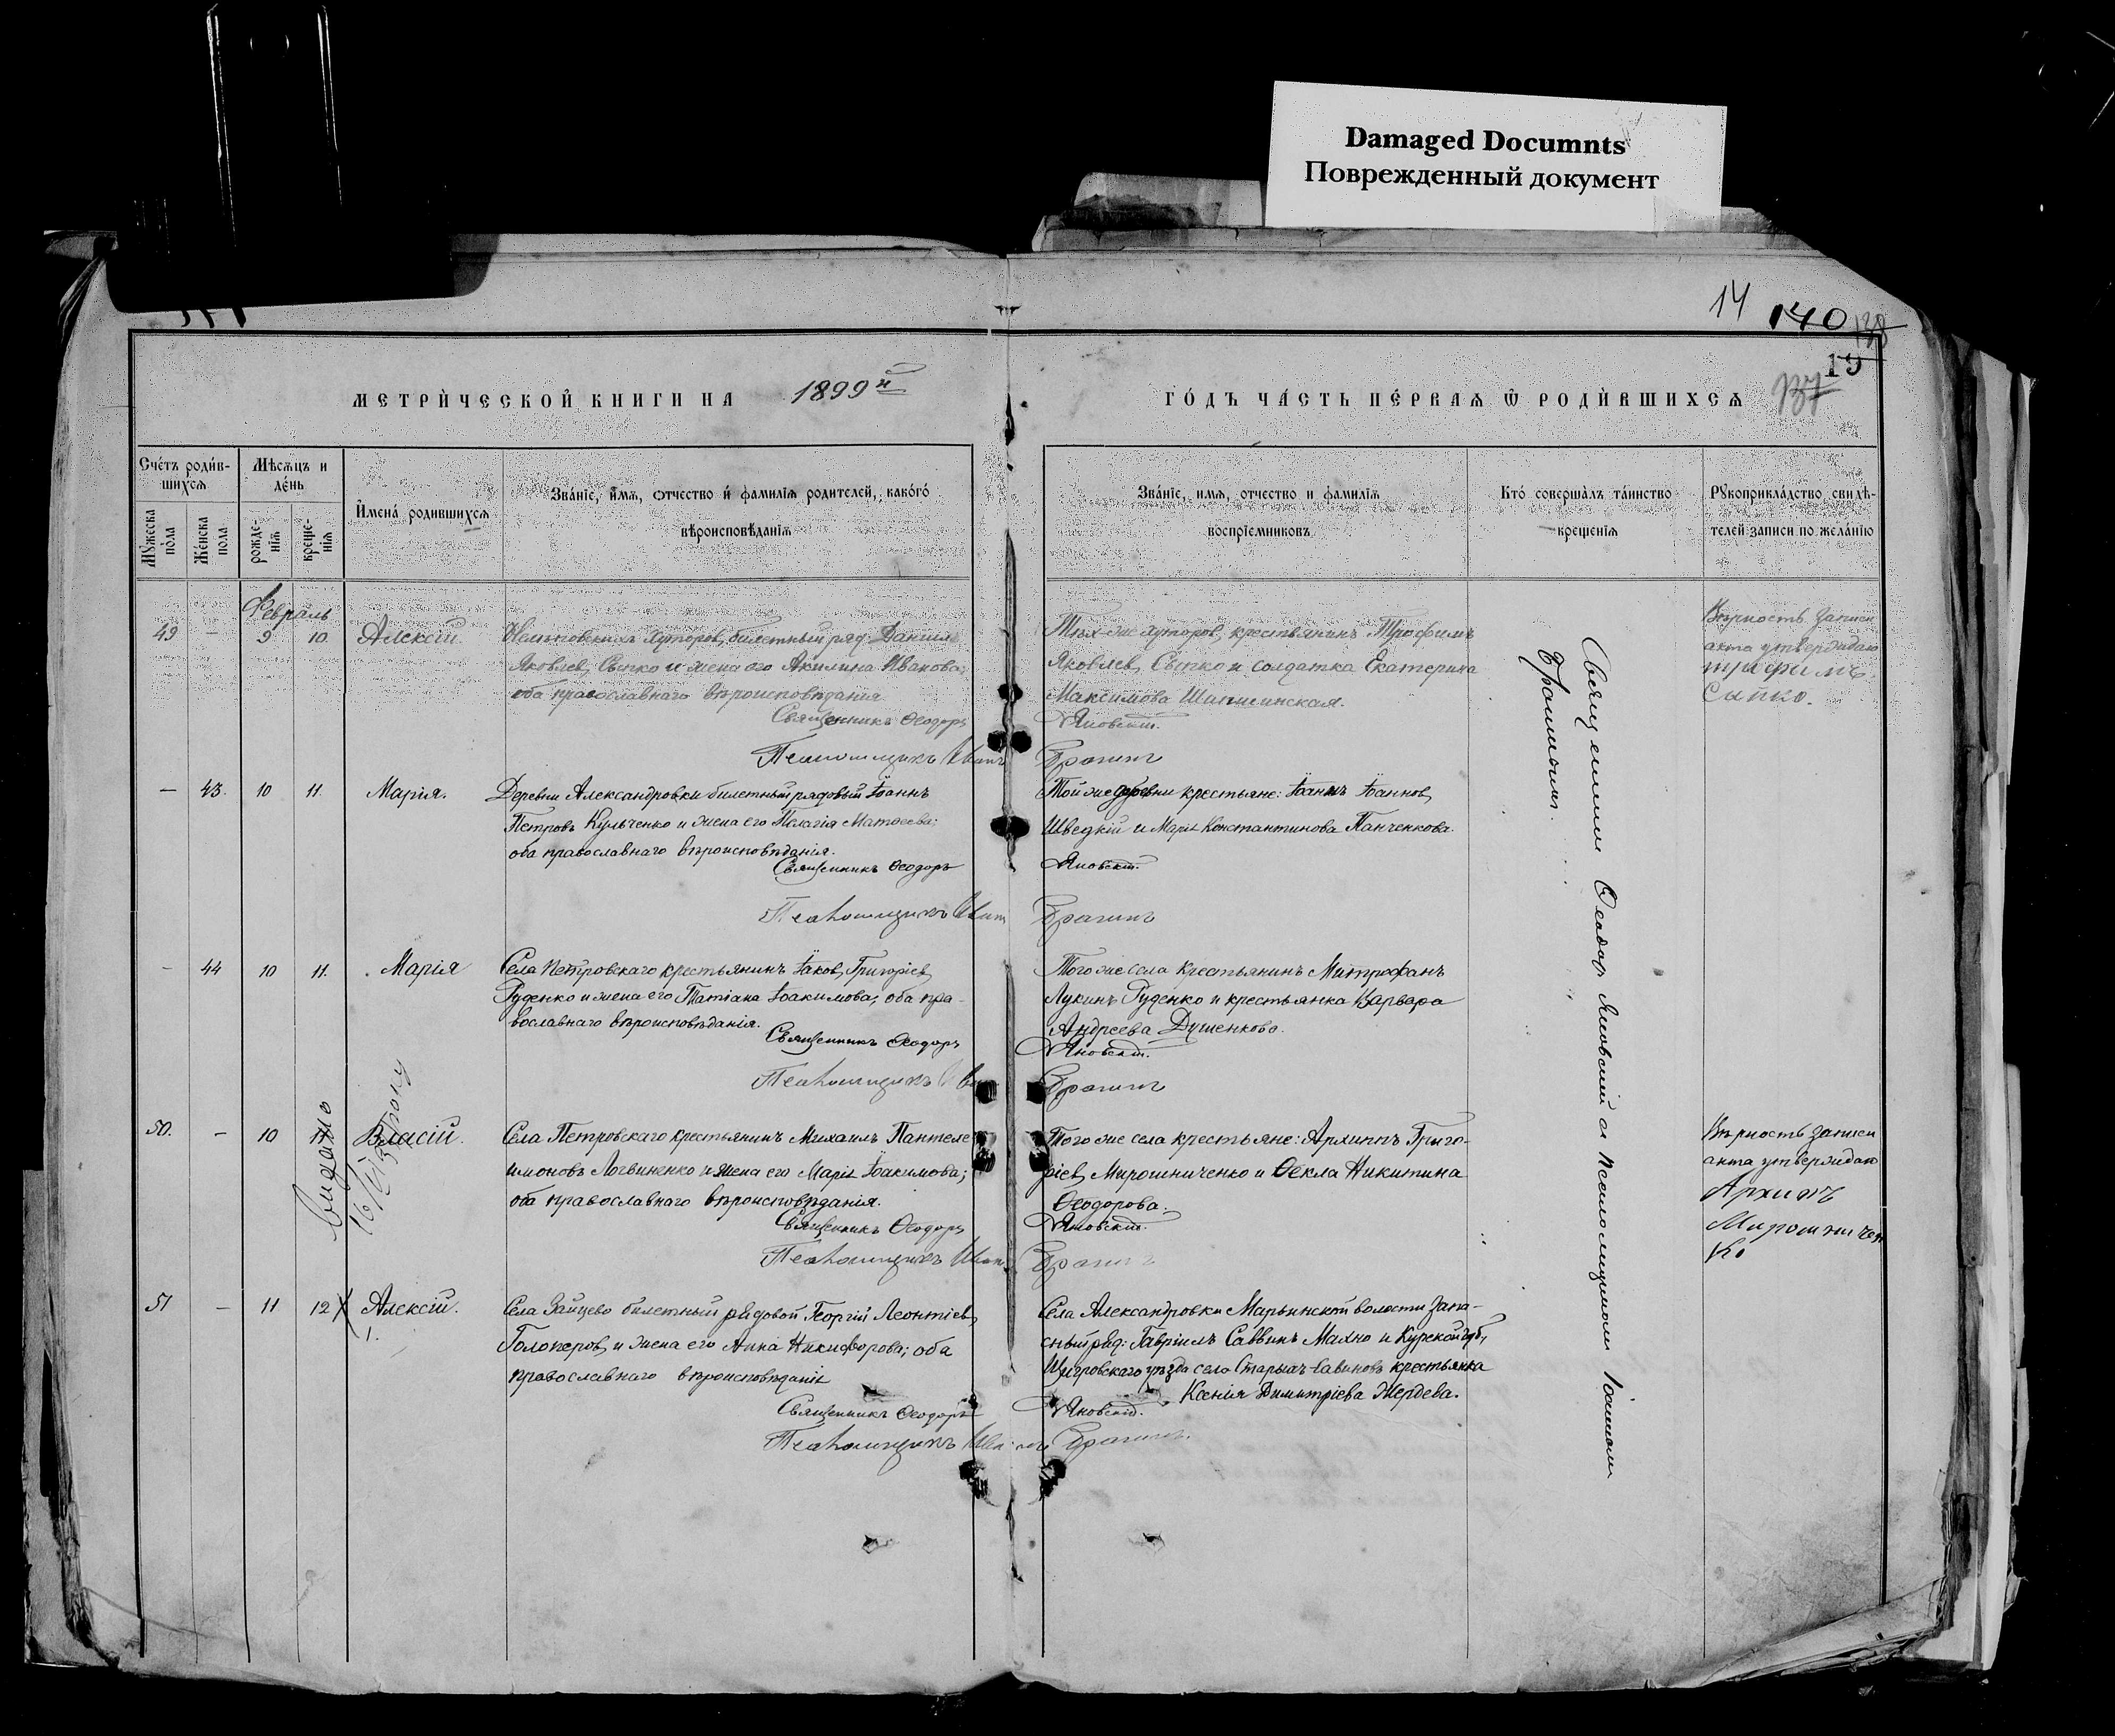 Damaged Documnts
Поврежденный документ
14 140
19
137
МЕТРИ́ЧЕСКОЙ КНИГИ НА 1899й
ГО́ДЪ ЧА́СТЬ ПЕ́РВАѦ Ѿ РОДИ́ВШИХСѦ
Сче́тъ роди́в-
шихсѧ
Мѣсѧцъ и
де́нь
Мꙋжеска
пола
Же́нска
пола
рожде-
нїѧ
креще-
нїѧ
И҆мена́ родившихсѧ
Зва́нїе, и҆́мѧ, отчество и҆ фамилїѧ родителей, како́гѡ
вѣроисповѣ́данїѧ
Зва́нїе, имѧ, отчество и фамилїѧ
воспрїемниковъ
Кто́ соверша́лъ та́инство
крещенїѧ
Рꙋкоприкла́дство свидѣ-
телей записи по жела́нїю
Февраль
49 - 9 10 Алексій.
хуторов, билетный ряд: Даніил
Яковлев, Сыпко и жена его Акилина Иванова;
оба православнаго вѣроисповѣданія
Священникъ Ѳеодоръ
Псаломщикъ Иванъ
Тѣх-же хуторов, крестьянинъ Трофимъ
Яковлев, Сыпко и солдатка Екатерина
Максимова
Яновскій.
Брагинъ
Вѣрность записи
акта утверждаю
трифимъ
Сыпко.
— 43. 10 11. Марія.
Деревни Александровки билетный рядовый Іоаннъ
Петровъ Кульченко и жена его Пелагія Матѳеева:
оба православнаго вѣроисповѣданія.
Священникъ Ѳеодоръ
Псаломщикъ Иванъ
Той же деревни крестьяне: Іоаннъ Іоаннов,
Шведкій и Марія Константинова Панченкова.
Яновскій.
Брагинъ
- 44 10 11. Марія
Села Петровскаго крестьянинъ Іаков, Григоріев,
Руденко и жена его Татіана Іоакимова; оба пра-
вославнаго вѣроисповѣданія.
Священникъ Ѳеодоръ
Псаломщикъ
Того же села крестьянинъ Митрофанъ
Лукинъ Руденко и крестьянка Варвара
Андреева Душенкова.
Яновскій.
Брагинъ
50. - 10 11 Власій.
Видано
Села Петровскаго крестьянинъ Михаилъ Пантеле-
имоновъ Логвиненко и жена его Марія Іоакимова;
оба православнаго вѣроисповѣданія.
Священникъ Ѳеодоръ
Псаломщикъ Иванъ
Того же села крестьяне: Архиппъ Григо-
ріев, Мирошниченко и Ѳекла Никитина
Ѳеодорова.
Яновскій.
Брагинъ
Вѣрность записи
акта утверждаю
Архипъ
Мирошничен
ко
51 - 11 12 Алексій.
Села Зайцево билетный рядовой Георгій Леонтіев,
Голоперов, и жена его Анна Никифорова; оба
православнаго вѣроисповѣданія
Священникъ Ѳеодоръ
Псаломщикъ Иванъ
Села Александровки Марьинской волости запа-
сный ряд: Гавріилъ Саввинъ Махно и Курской губ,
Щигровскаго уѣзда села Старыхъ Савиновъ крестьянка
Ксенія Димитріева Жердева.
Яновскій.
Брагинъ.
Священник Ѳеодор Яновскій с псаломщиком Іоанном
Брагиным.